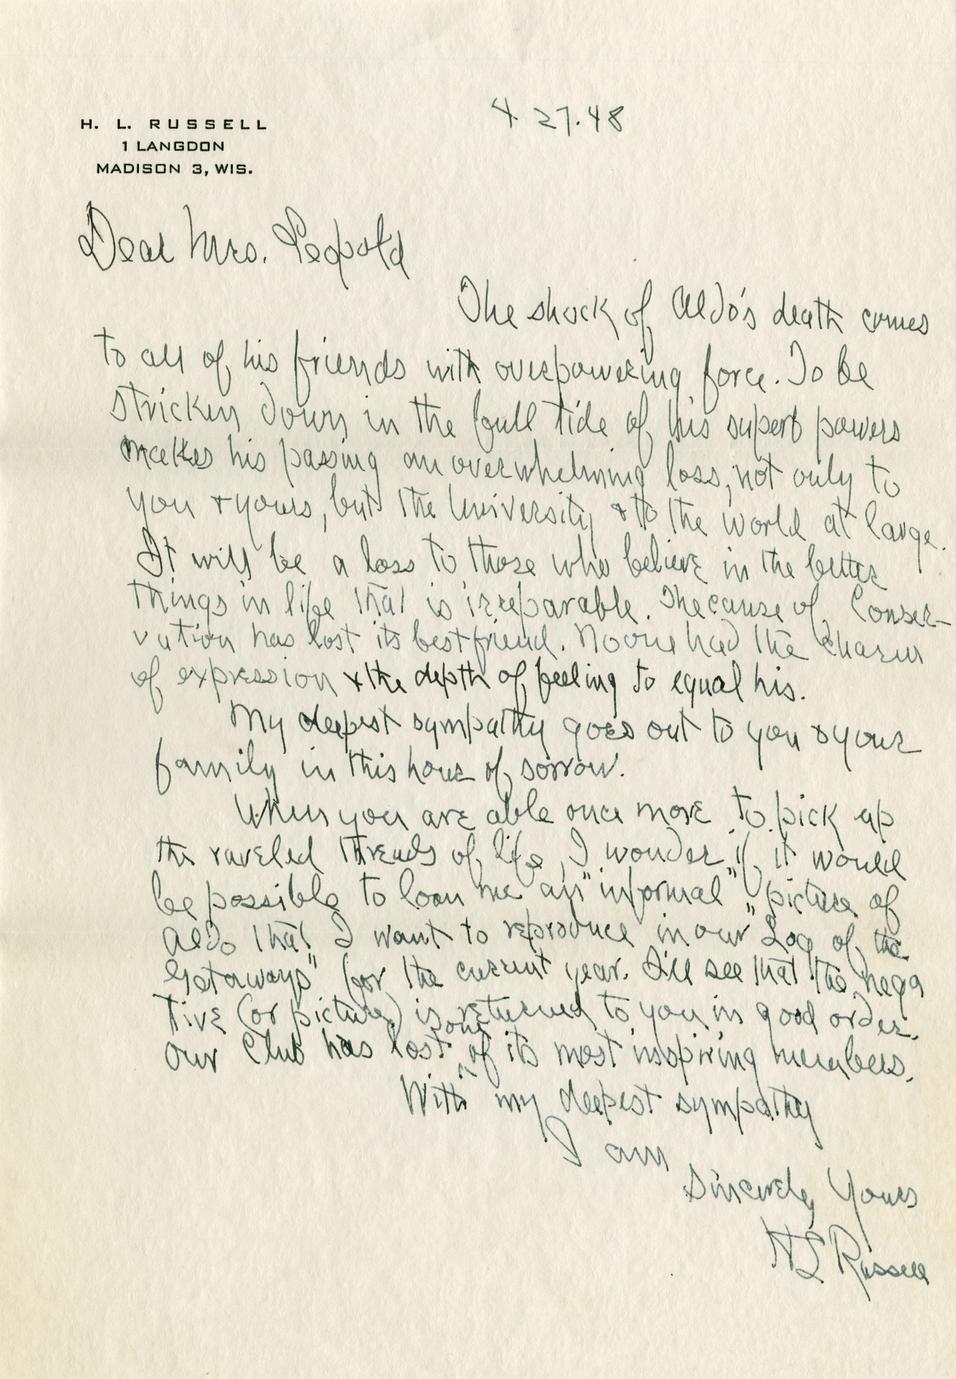 H. L. RUSSELL
1 LANGDON
MADISON 3, WIS.
4 27.48
Dear Mrs. Leopold
The shock of Aldo's death comes
to all of his friends with overpowering force. To be
stricken down in the full tide of his superb powers
makes his passing an overwhelming loss, not only to
you & yours, but the University & to the world at large.
It will be a loss to those who believe in the better
things in life that is irreparable. The cause of Conser-
vation has lost its best friend. No one had the charm
of expression & the depth of feeling to equal his.
My deepest sympathy goes out to you & your
family in this hour of sorrow.
When you are able once more to pick up
the raveled threads of life, I wonder if it would
be possible to loan me an "informal" picture of
Aldo that I want to reproduce in our "Log of the
Getaways" for the current year. I'll see that the nega
tive (or picture) is returned to you in good order.
Our Club has lost one of its most inspiring members.
With my deepest sympathy
I am
Sincerely Yours
HL Russell